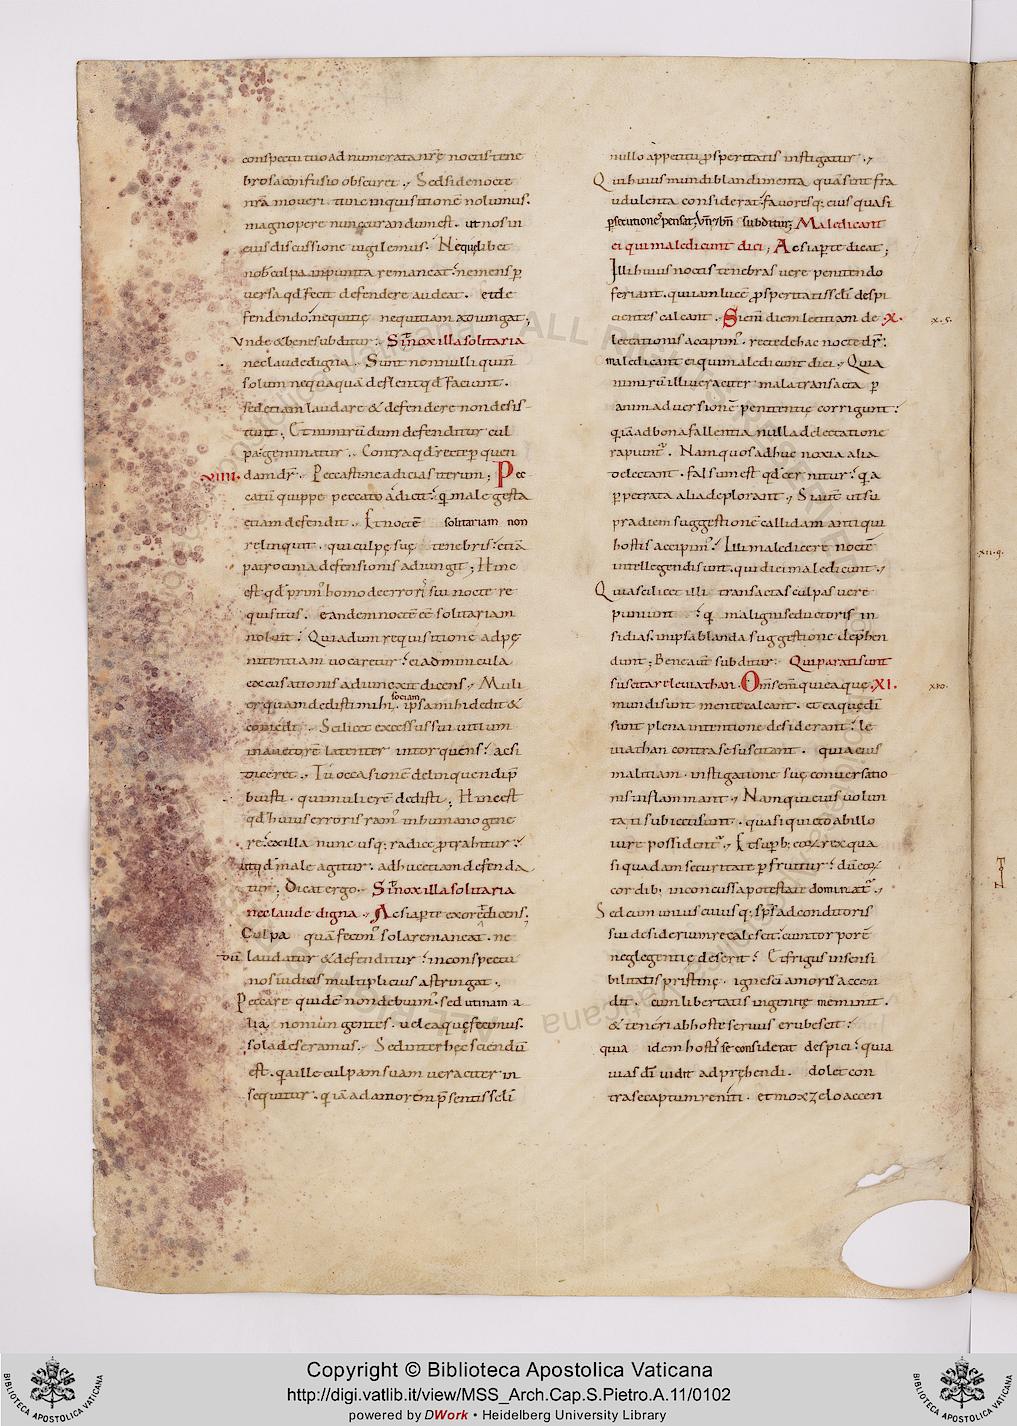 conspectu tuo ad numerata nr̄ę noctis tene
brosa confusio obscuret. Sed si de nocte
nr̄a moueri. tunc inquisitionē nolumus.
magnopere nunc curandum est. ut nos in
eius discussione uigilemus. Nequęlibet
nob culpa inpunita remaneat. ne mens p
uersa qd fecit defendere audeat. et de
fendendo. nequitię nequitiam adiungat;
Vnde & bene subditur. Sit nox illa solitaria
nec laude digna. Sunt nonnulli qui n̄
solum nequaquā deflent qd faciunt.
sed etiam laudare & defendere non desis
tunt; Et nimirū dum defenditur cul
pa. geminatur. Contra qd recte p quen
VIIII. dam dr̄. Peccasti ne adicias iterum; Pec
catū quippe peccato adicit. q male gesta
etiam defendit. Et noctē solitariam non
relinquit. qui culpę suę tenebris. etiā
patrocinia defensionis adiungit; Hinc
est qd prim' homo de erroris sui nocte re
quisitus. eandem noctē eē solitariam
noluit. Qui a dum requisitione ad pę
nitentiam uocaretur. ei adminicula
excusationis adiunexit dicens. Muli
er quam dedisti mihi sociam. ipsa mihi dedit &
comedi. Scilicet excessus sui uitium
in auctorē latenter intorquens. ac si
diceret. Tu occasionē delinquendi p
buisti. qui mulierē dedisti; Hinc est
qd huius erroris ram' in humano gene
re. ex illa nunc usq; radice ptrahitur.
ut qd male agitur. adhuc etiam defenda
tur; Dicat ergo. Sit nox illa solitaria
nec laude digna. Ac si apte exoret dicens.
Culpa quā fecim' sola remaneat. ne
dū laudatur & defenditur. in conspectu
nos iudicis multiplicius astringat.
Peccare quidē non debuim'. sed utinam a
lia non iungentes. uel ea quę fecimus.
sola deseramus. Sed inter hęc sciendū
est. q a ille culpam suam ueraciter in
sequitur. q iā ad amorem psentis sc̄li
nullo appetitu psperitatis instigatur.
Qui huius mundi blandimenta quā sint fra
udulenta considerat. fauoresq; eius quasi
psecutionē pensat. Vn̄ & bn̄ subditur; Maledicant
ei qui maledicunt diei; Ac si apte dicat;
Illi huius noctis tenebras uere penitendo
feriant. qui iam lucē psperitatis sc̄li despi
cientes calcant. Si em diem letitiam de X. x. 5.
lectationis accipim'. recte de hac nocte dr̄.
maledicant ei qui maledicunt diei. Quia
nimirū illi ueraciter mala transacta p
animaduersionē penitentię corrigunt.
qui iā ad bona fallentia nulla delectatione
rapiunt̄. Nam quos adhuc noxia alia
delectant. falsum est qd cernitur. q a
ppetrata alia deplorant. Si aut ut su
pra diem suggestionē callidam antiqui
hostis accipim'. Illi maledicere noctē
intellegendi sunt. qui diei maledicunt. xii. 9.
Quia scilicet illi transactas culpas uere
puniunt. q maligni seductoris in
sidias. in ipsa blanda suggestione dephen
dunt; Bene aut subditur. Qui parati sunt
suscitare leuiathan. Om̄s em qui ea quę XI.
mundi sunt mente calcant. et ea quę dī
sunt plena intentione desiderant. le
uiathan contra se suscitant. quia eius
malitiam. instigatione suę conuersatio
nis inflammant. Nam qui eius uolun
tati subiecti sunt. quasi quieto ab illo
iure possident̄. Et supb; eoꝝ rex qua
si quadam securitate pfruitur. dū eoꝝ
cordib; inconcussa potestate dominat̄.
Sed cum unius cuiusq; sps ad conditoris
sui desiderium recalescit. cum torporē
neglegentię deserit. Et frigus insensi
bilitatis pristinę. igne sc̄i amoris accen
dit. cum libertatis ingenitę meminit.
& teneri ab hoste seruus erubescit.
quia idem hostis se considerat despici. quia
uias dī uidit adprehendi. dolet con
tra se captum reniti. et mox zelo accen
Copyright © Biblioteca Apostolica Vaticana
http://digi.vatlib.it/view/MSS_Arch.Cap.S.Pietro.A.11/0102
powered by DWork • Heidelberg University Library